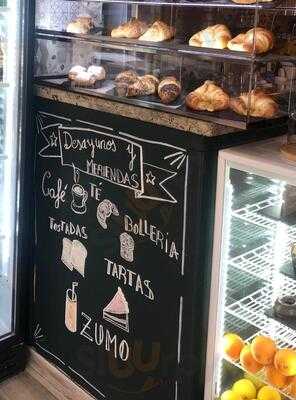 Desayunos y
Meriendas
Café
Té
Bollería
Tostadas
Tartas
Zumo